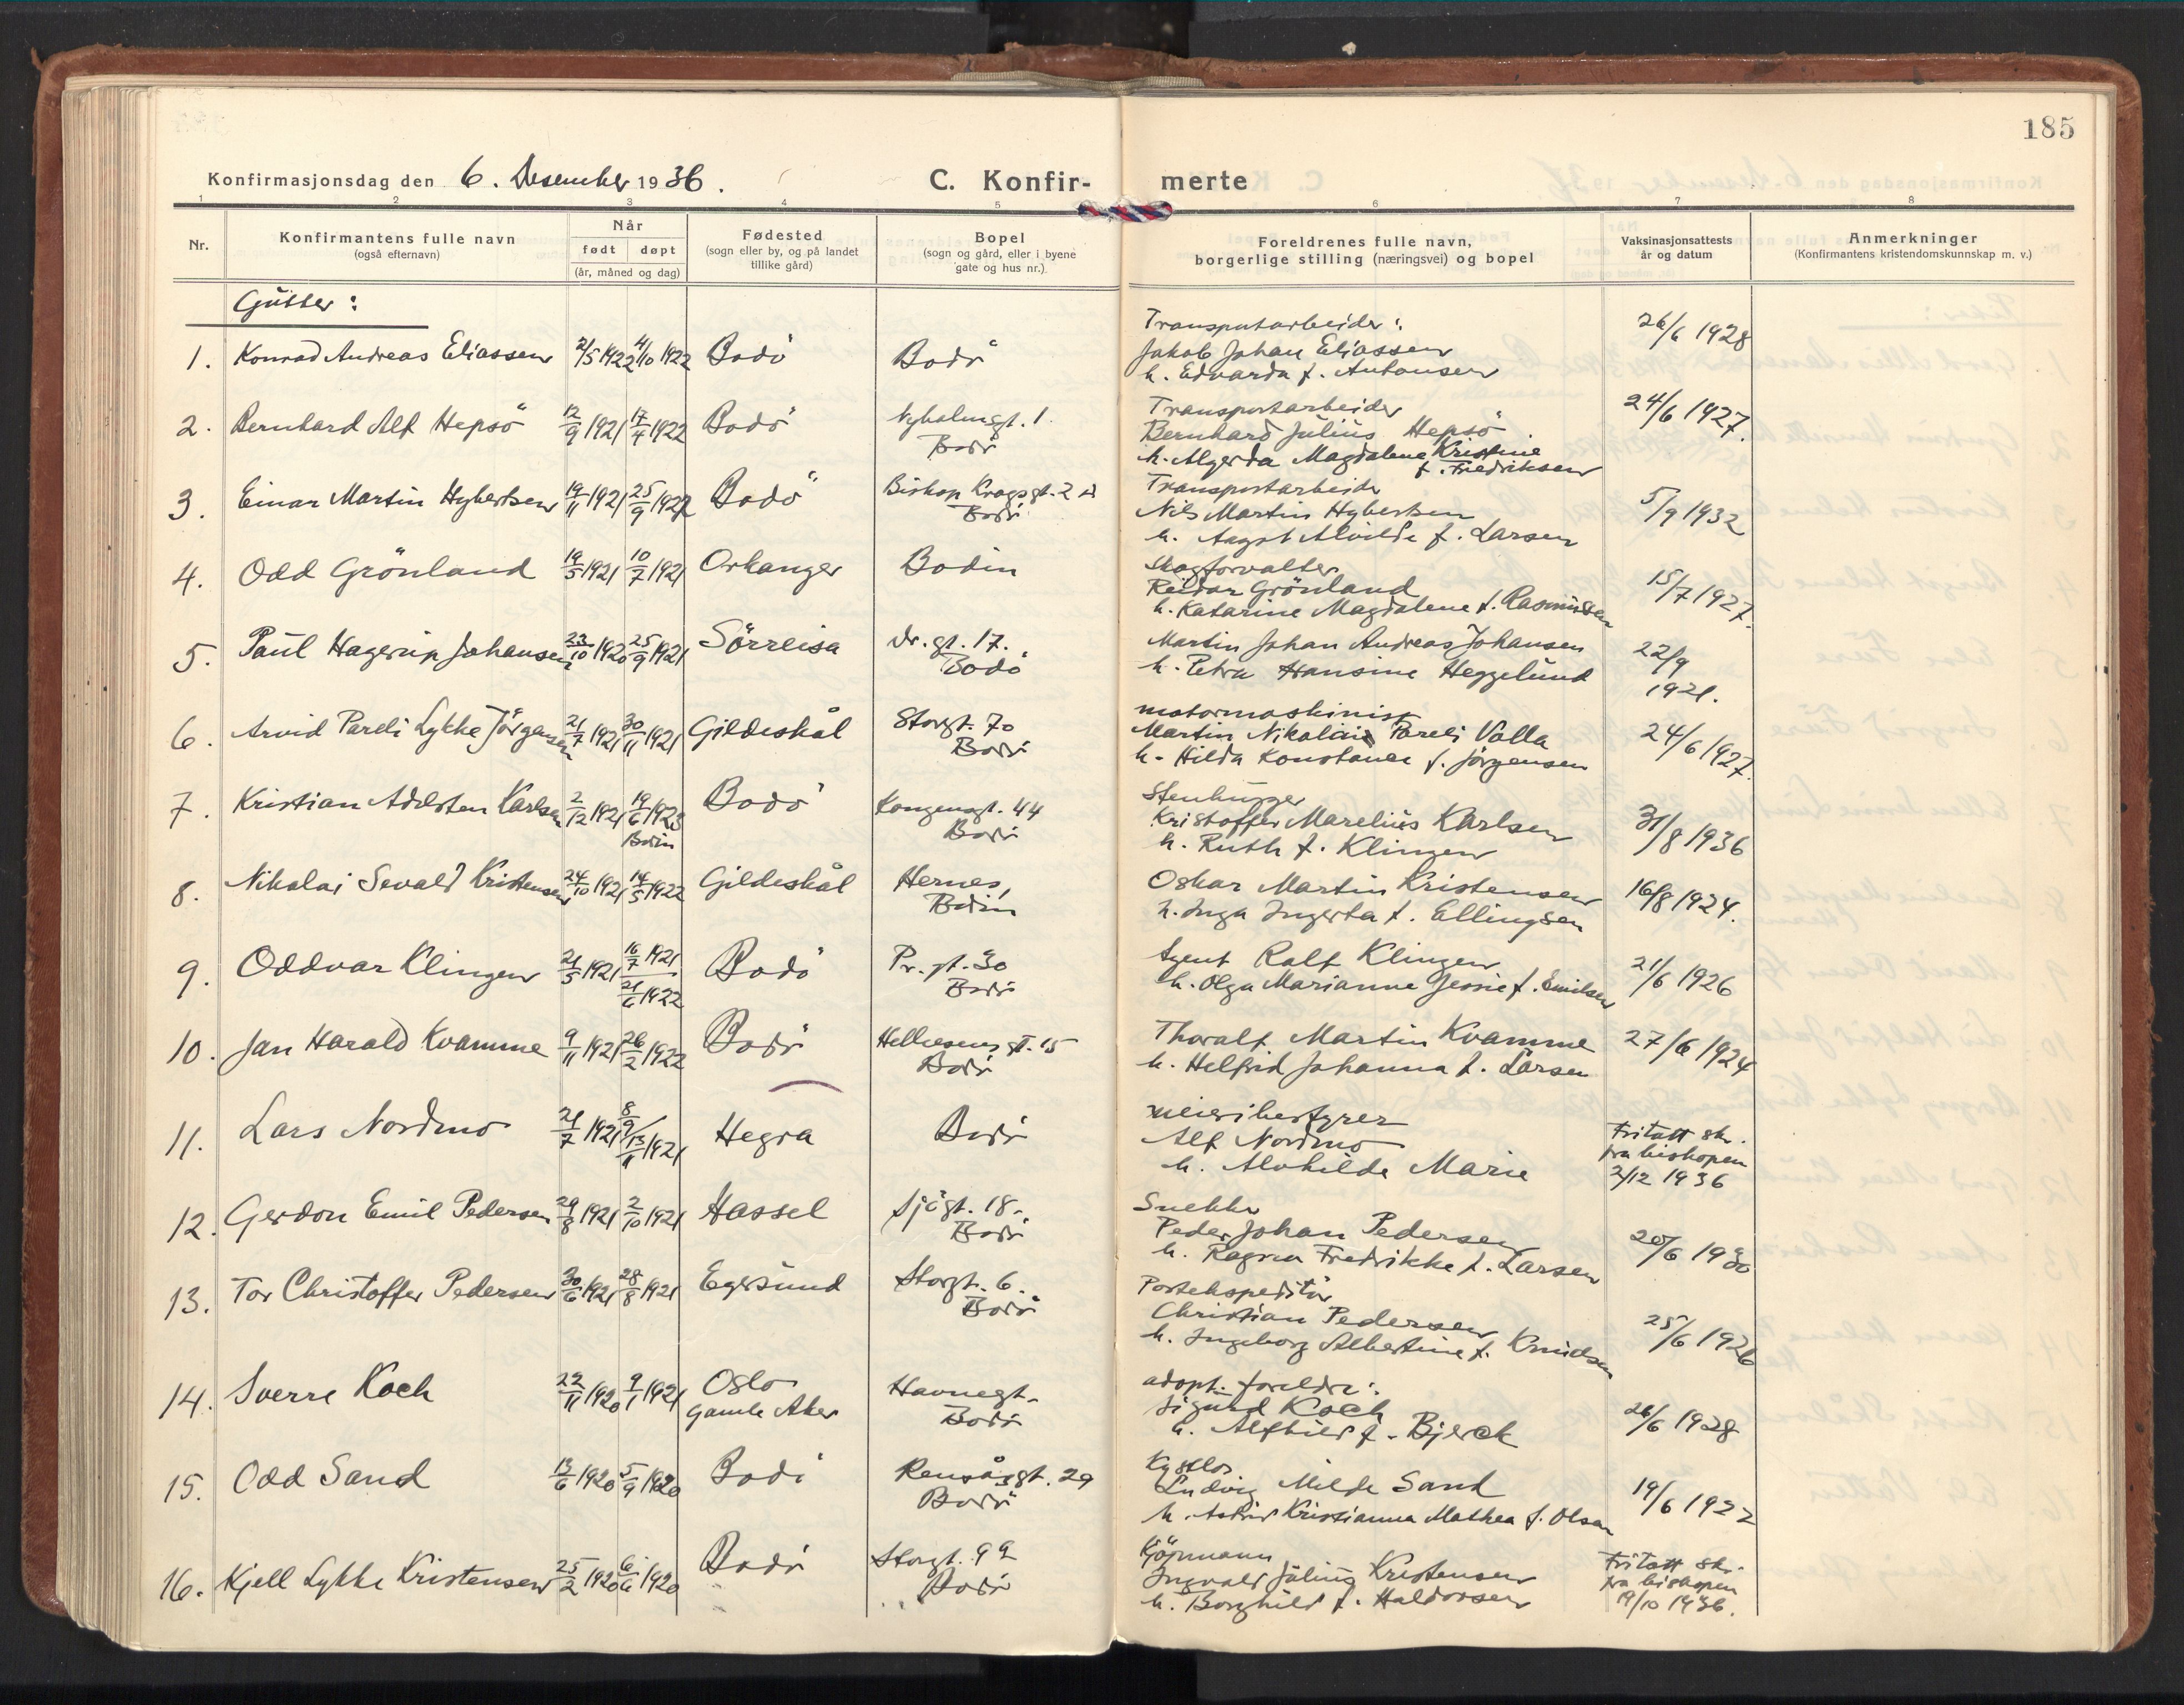 185
Konfirmasjonsdag den 6. Desember 1936.
C. Konfir-merte
1 2 3 4 5 6 7 8
Nr.
Konfirmantens fulle navn
(også efternavn)
Når
født døpt
(år, måned og dag)
Fødested
(sogn eller by, og på landet
tillike gård)
Bopel
(sogn og gård, eller i byene
gate og hus nr.)
Foreldrenes fulle navn,
borgerlige stilling (næringsvei) og bopel
Vaksinasjonsattests
år og datum
Anmerkninger
(Konfirmantens kristendomskunnskap m. v.)
Gutter:
1. Konrad Andreas Eliassen 2/5 1922 4/10 1922 Bodö Bodö
Transportarbeider:
Jakob Johan Eliassen
h. Edvarda f. Antonsen
26/6 1928
2. Bernhard Alf Hepsö 12/9 1921 17/4 1922 Bodö Nyholmsgt. 1.
Bodö
Transportarbeider
Bernhard Julius Hepsö
h. Algerda Magdalene Kristine
f. Fredriksen
24/6 1927.
3. Einar Martin Hybertsen 19/11 1921 25/9 1922 Bodö Bishop Kragsgt. 2
Bodö
Transportarbeider
Nils Martin Hybertsen
h. Aagot Alvilde f. Larsen
5/9 1932
4. Odd Grönland 19/5 1921 10/7 1921 Orkanger Bodin
Skogforvalter
Reidar Grönland
h. Katarine Magdalene f. Rasmussen
15/7 1927.
5. Paul Hagerup Johansen 23/10 1920 25/9 1921 Sörreisa Dr. gt. 17.
Bodö
Martin Johan Andreas Johansen
h. Petra Hansine Heggelund
22/9
1921.
6. Arvid Pareli Lykke Jörgensen 21/7 1921 30/11 1921 Gildeskål Storgt. 70
Bodö
motormaskinist
Martin Nikolai Pareli Valla
h. Hilda Konstance f. Jörgensen
24/6 1927.
7. Kristian Adelsten Karlsen 2/12 1921 19/6 1923 Bodö Kongensgt. 44
Bodin
Bodö
Stenhugger
Kristoffer Marelius Karlsen
h. Ruth f. Klingen
31/8 1936
8. Nikolai Sevald Kristensen 24/10 1921 14/5 1922 Gildeskål Hernes,
Bodin
Oskar Martin Kristensen
h. Inga Ingerta f. Ellingsen
16/8 1924.
9. Oddvar Klingen 21/5 1921 16/7 1921 Bodö Pr. gt. 30
21/6 1922
Bodö
Agent Ralf Klingen
h. Olga Marianne Jessie f. Emilsen
21/6 1926
10. Jan Harald Kvamme 9/11 1921 26/2 1922 Bodö Hellesens gt. 15
Bodö
Thoralf Martin Kvamme
h. Helfrid Johanna f. Larsen
27/6 1924
11. Lars Nordmo 21/7 1921 8/9 / 13/11 1921 Hegra Bodö
meieribestyrer
Alf Nordmo
h. Alvhilde Marie
Fritatt skr.
fra biskopen
2/12 1936
12. Gerdon Emil Pedersen 29/8 1921 2/10 1921 Hassel Sjögt. 18.
Bodö
Snekker
Peder Johan Pedersen
h. Ragna Fredrikke f. Larsen
20/6 1930
13. Tor Christoffer Pedersen 30/6 1921 28/8 1921 Egersund Storgt. 6.
Bodö
Postekspeditör
Christian Pedersen
h. Ingeborg Albertine f. Knudsen
25/6 1926
14. Sverre Koch 22/11 1920 9/1 1921 Oslo Havnegt.
Gamle Aker
Bodö
adopt. foreldre:
Sigurd Koch
h. Alfhild f. Bjerck
26/6 1928
15. Odd Sand 13/6 1920 5/9 1920 Bodö Rensåsgt. 29
Bodö
Ludvig Milde Sand
h. Astrid Kristianna Mathea f. Olsen
19/6 1922
16. Kjell Lykke Kristensen 25/2 1920 6/6 1920 Bodö Storgt. 99
Bodö
Kjöpmann
Ingvald Julius Kristensen
h. Borghild f. Haldorsen
Fritatt skr.
fra biskopen
19/10 1936.